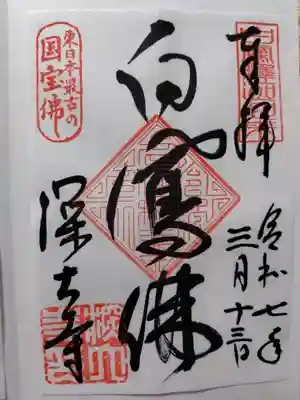 奉拝
令和七年
三月十三日
白鳳佛
東日本最古の
国宝佛
深大寺